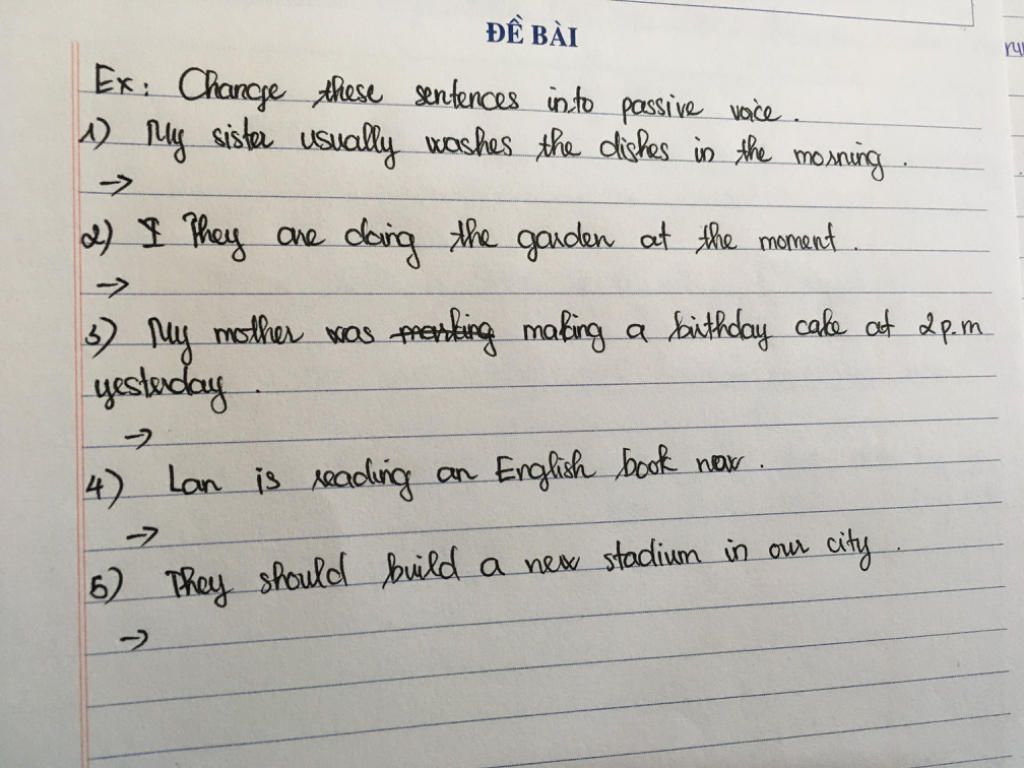 ĐỀ BÀI
Ex: Change these sentences into passive voice.
1) My sister usually washes the dishes in the morning.
→
2) They are doing the garden at the moment.
→
3) My mother was making a birthday cake at 2 p.m
yesterday.
→
4) Lan is reading an English book now.
→
5) They should build a new stadium in our city.
→